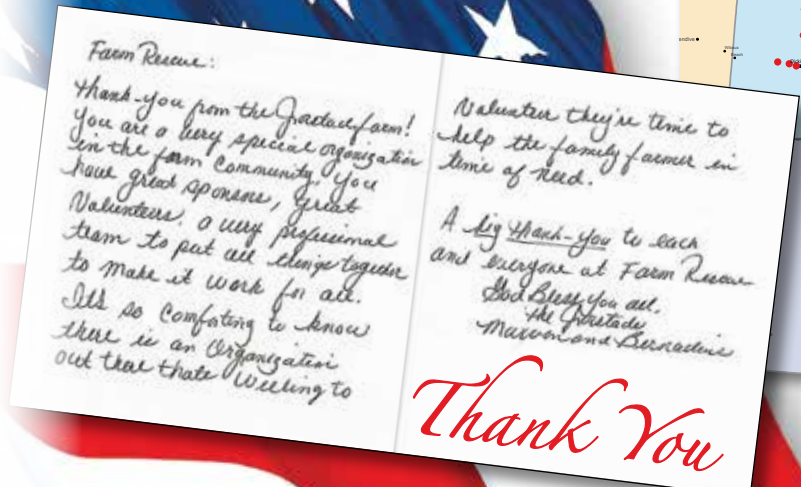 Farm Rescue:
Thank-you from the farm!
You are a very special organization
in the farm community. You
have great sponsors, great
Volunteers, a very professional
team to put all things together
to make it work for all.
It's so comforting to know
there is an Organization
out there thats willing to
Volunteer they're time to
help the family farmer in
time of need.
A big thank-you to each
and everyone at Farm Rescue
God Bless You all.
the
Marvin and Bernadine
Thank You